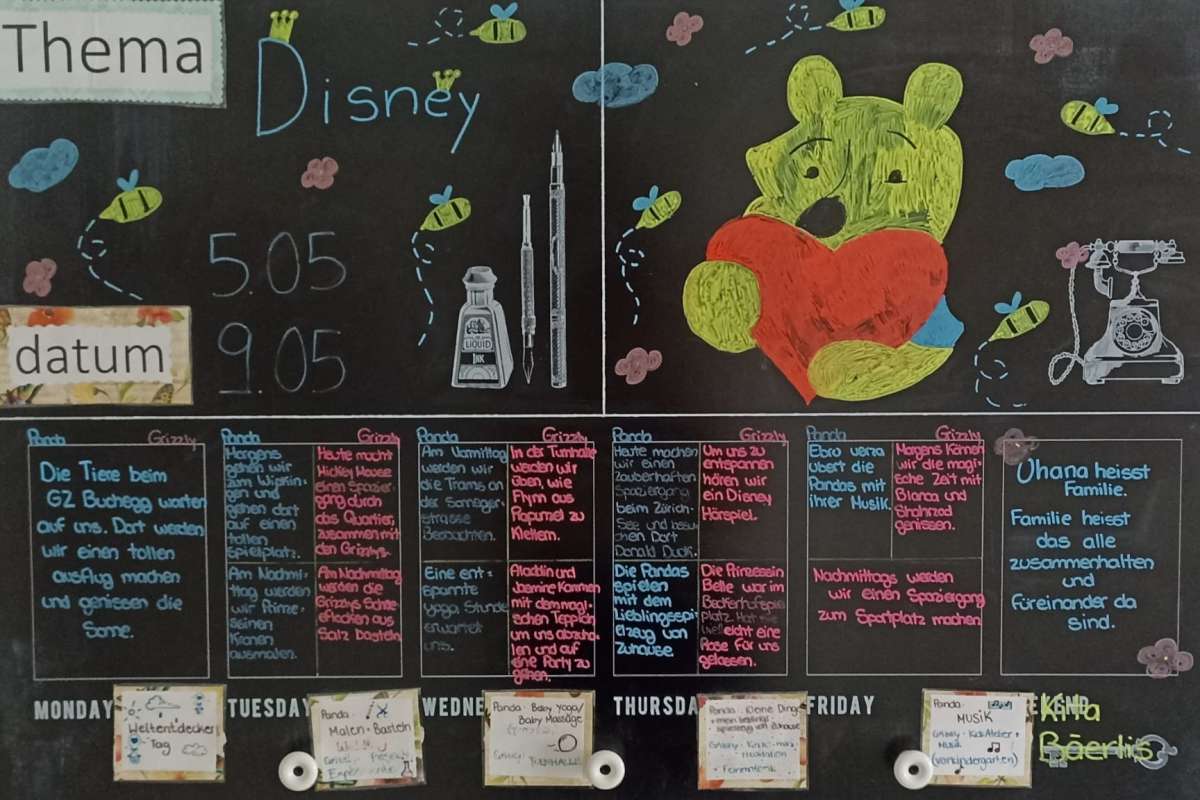 Thema
Disney
5.05
datum
9.05
LIQUID
INK
Panda Grizzly
Die Tiere beim
GZ Buchegg warten
auf uns. Dort werden
wir einen tollen
ausflug machen
und genissen die
Sonne.
Panda Grizzly
Morgens
gehen wir
zum Wipkin-
gen und
gehen dort
auf einen
tollen
spielplatz.
Heute macht
Mickey Mouse
einen Spazier-
gang durch
das Quartier,
zusammen mit
den Grizzlys.
Am Nachmi-
ttag werden
wir Prinze-
seinen
Kronen
ausmalen.
Am Nachmittag
werden die
Grizzlys
eflocken aus
Salz basteln
Panda Grizzly
Am Vormittag
werden wir
die Trams an
der
strasse
Beobachten.
In der Turnhalle
werden wir
üben, wie
Flynn aus
Rapunzel zu
Klettern.
Eine ent-
spannte
yoga Stunde
erwartet
uns.
Aladdin und
Jasmine Kommen
mit dem magi-
schen Teppich
um uns abzuho-
len und auf
eine Party zu
gehen.
Panda Grizzly
Heute machen
wir einen
zauberhaften
Spaziergang
beim Zürich-
See und
chen Dort
Donald Duck.
Um uns zu
entspannen
hören wir
ein Disney
Hörspiel.
Die Pandas
spielen
mit dem
Lieblingsspi-
elzeug von
Zuhause.
Die Prinzessin
Belle war im
platz. Hat sie
vielleicht eine
Rose für uns
gelassen.
Panda Grizzly
Ebru verza
ubert die
Pandas mit
ihrer Musik.
Morgens Können
wir die magi-
sche Zeit mit
Bianca und
Shahrzad
genissen.
Nachmittags werden
wir einen Spaziergang
zum Sportplatz machen
Ohana heisst
Familie.
Familie heisst
das alle
zusammenhalten
und
füreinander da
sind.
MONDAY
TUESDAY
WEDNE
THURSDA
FRIDAY
WEEKEND
Weltentdecker
Tag
Panda:
Malen + Basteln
Panda: Baby Yoga/
Baby Massage
Grizzly: TURNHALLE
Panda: Kleine Dinge
+ mein lieblings-
spielzeug von zuhause
Panda:
MUSIK
Grizzly: KidsAtelier +
Musik
(Vorkindergarten)
Kita
Bäerlis